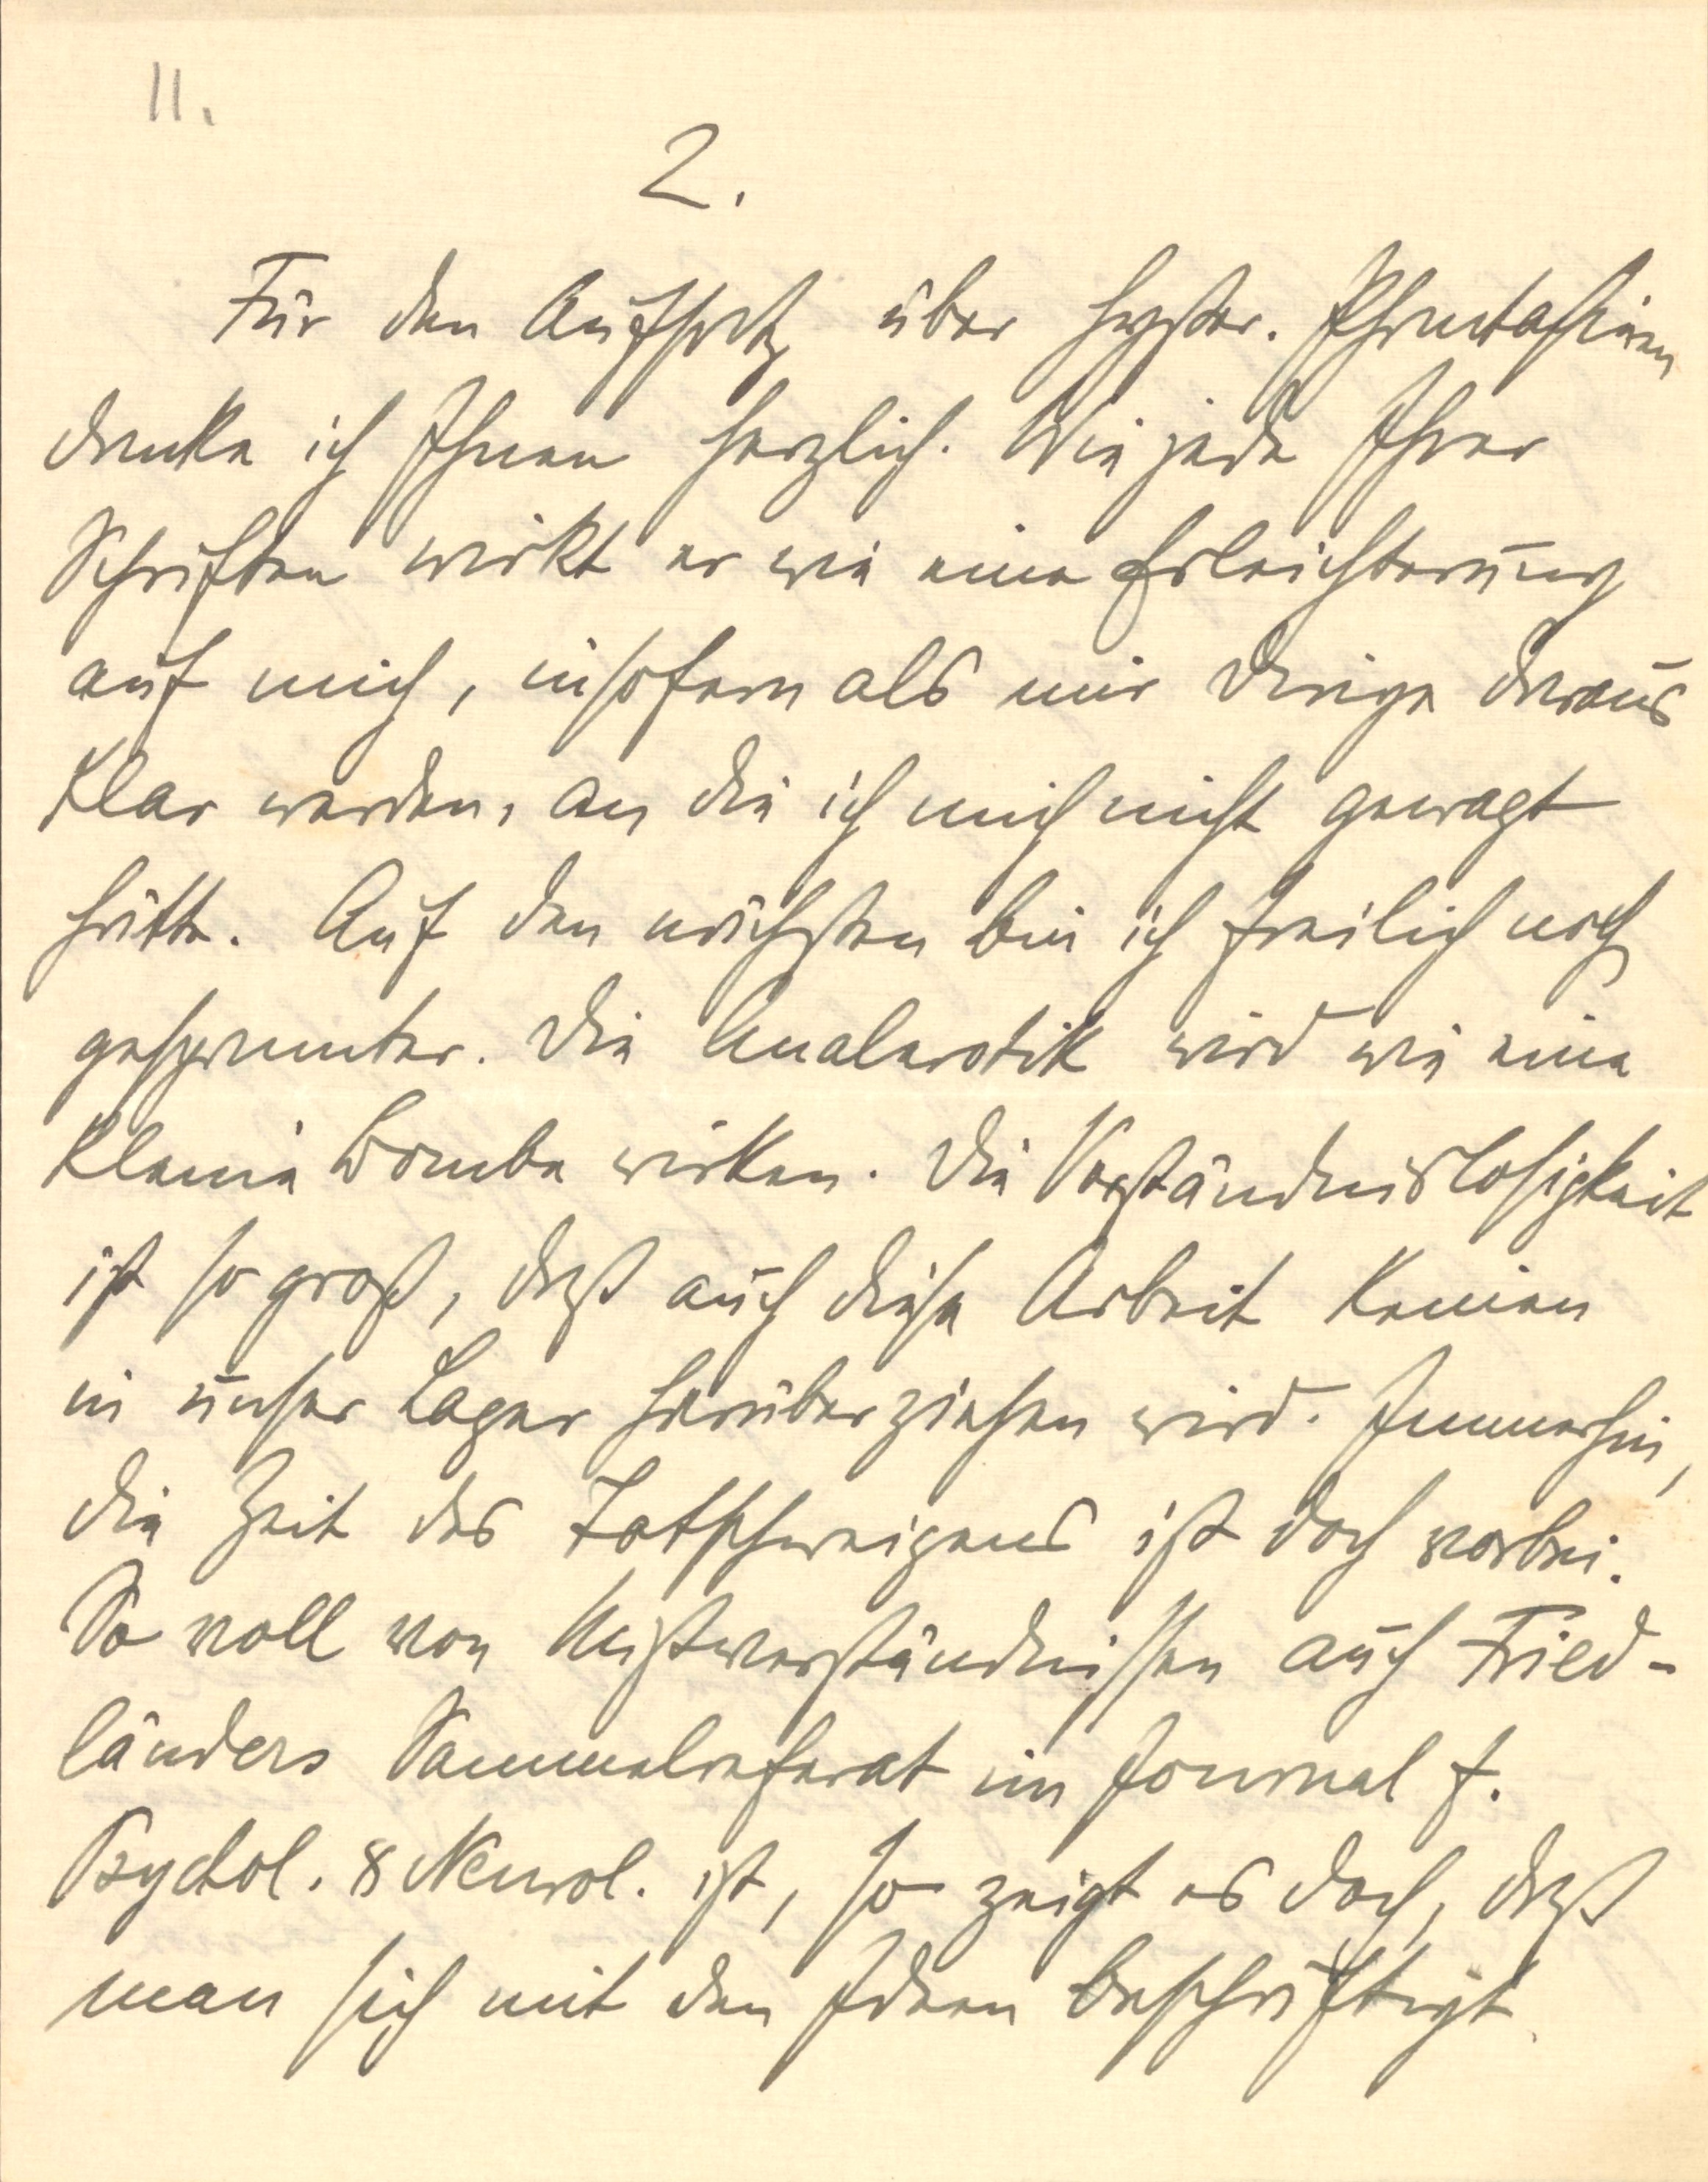 11.
2.
Für den Aufsatz über hyster. Phantasieen
danke ich Ihnen herzlich. Wie jede Ihrer
Schriften wirkt er wie eine Erleichterung
auf mich, insofern als mir Dinge daraus
klar werden, an die ich mich nicht gewagt
hätte. Auf den nächsten bin ich freilich noch
gespannter. Die Analerotik wird wie eine
kleine Bombe wirken. Die Verständnislosigkeit
ist so groß, daß auch diese Arbeit keinen
in unser Lager herüberziehen wird. Immerhin,
die Zeit des Totschweigens ist doch vorbei.
So voll von Mißverständnissen auch Fried-
länders Sammelreferat im Journal f.
Psychol. & Neurol. ist, so zeigt es doch, daß
man sich mit den Ideen beschäftigt.